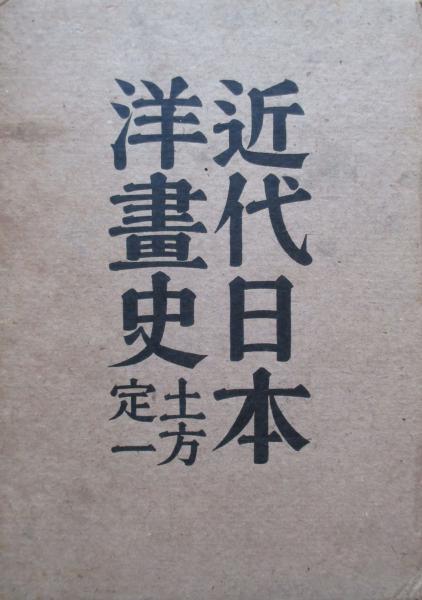 近代日本
洋畫史
土方
定一